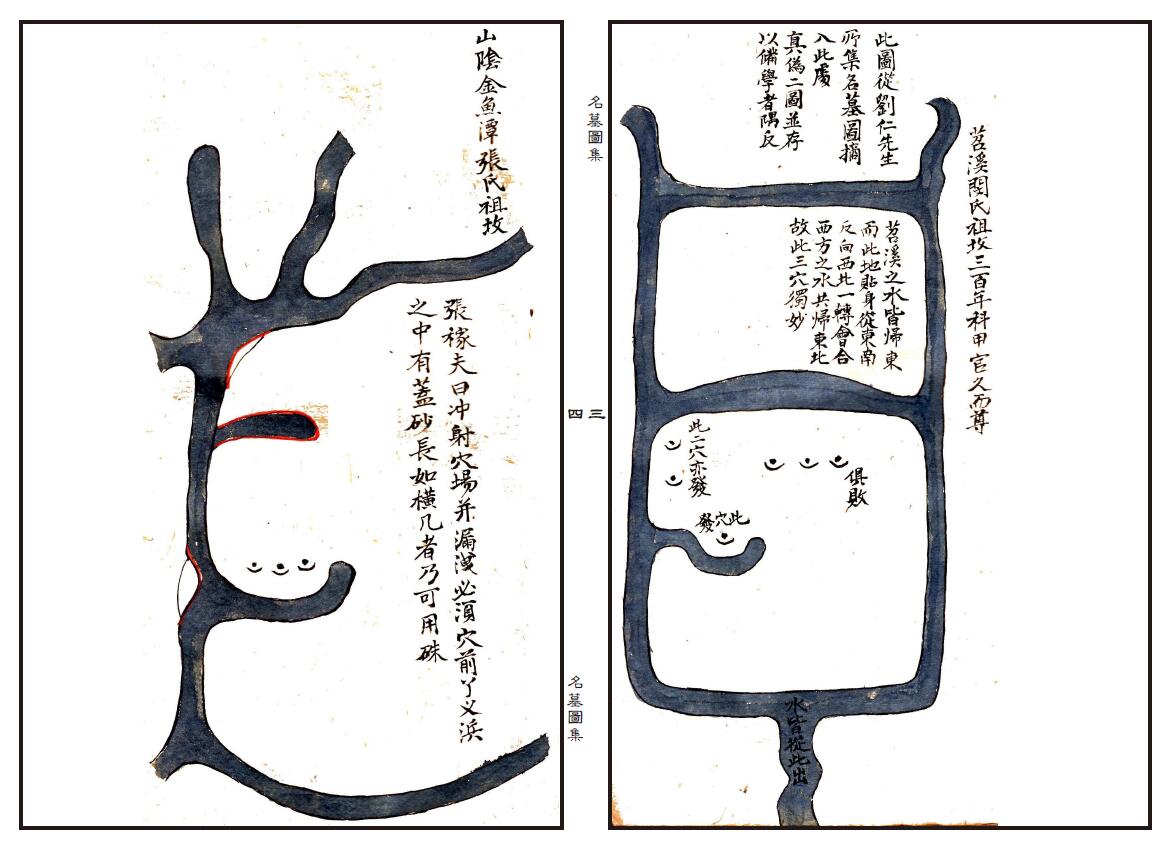 苕溪閔氏祖坟三百年科甲官久而尊
此圖從劉仁先生
所集名墓圖摘
入此處
真偽二圖並存
以備學者隅反
苕溪之水皆歸東
而此地貼身從東南
反向西北一轉會合
西方之水共歸東北
故此三穴獨妙
俱敗
此二穴亦發
此穴發
水皆從此出
名墓圖集
三
四
名墓圖集
山陰金魚潭張氏祖坟
張稼夫曰冲射穴場并漏洩必須穴前丫乂浜
之中有蓋砂長如橫几者乃可用硃